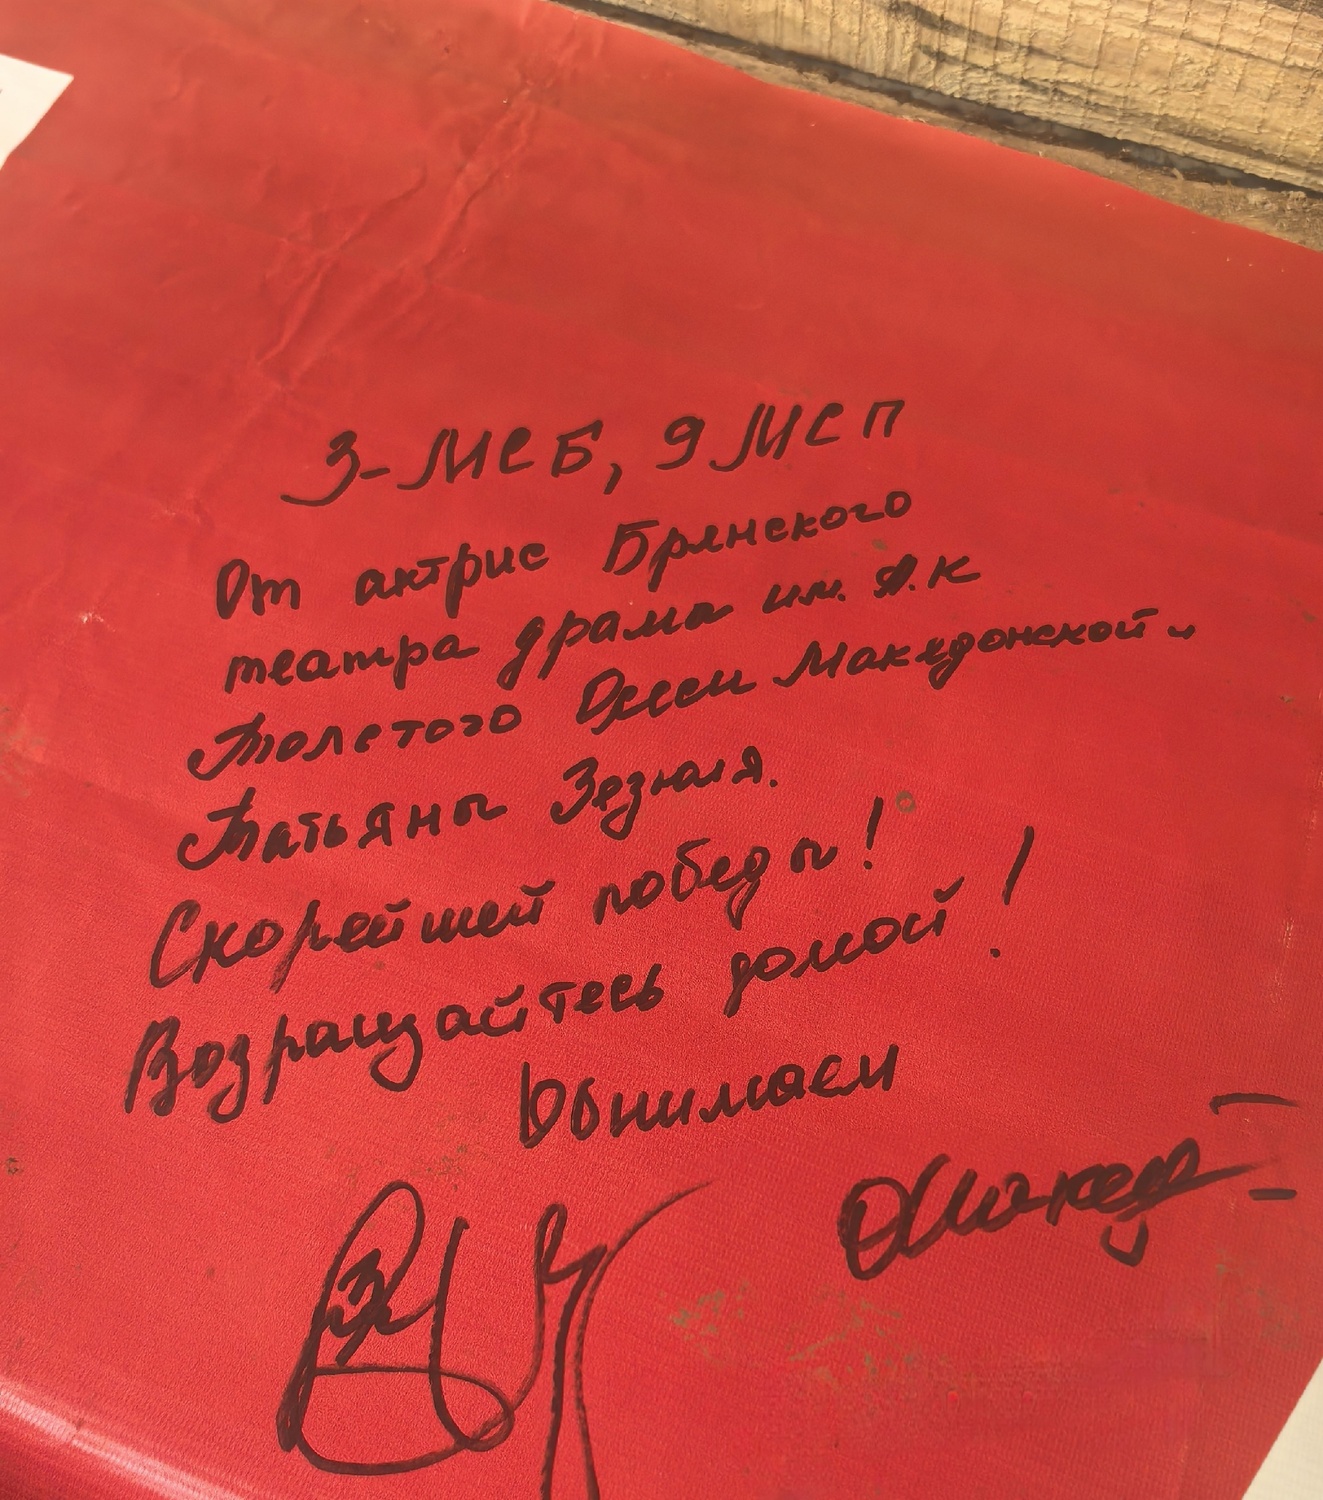 3-МСБ, 9 МСП
От актрис Брянского
театра драмы им. А.К
Толстого Олеси Македонской и
Татьяны Зезюля.
Скорейшей победы!
Возращайтесь домой!
Обнимаем